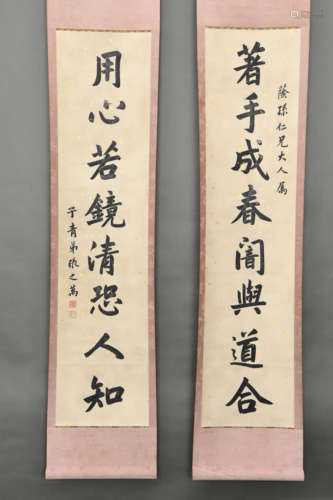 著手成春闇與道合
蔭孫仁兄大人属
用心若鏡清恐人知
子青弟張之萬